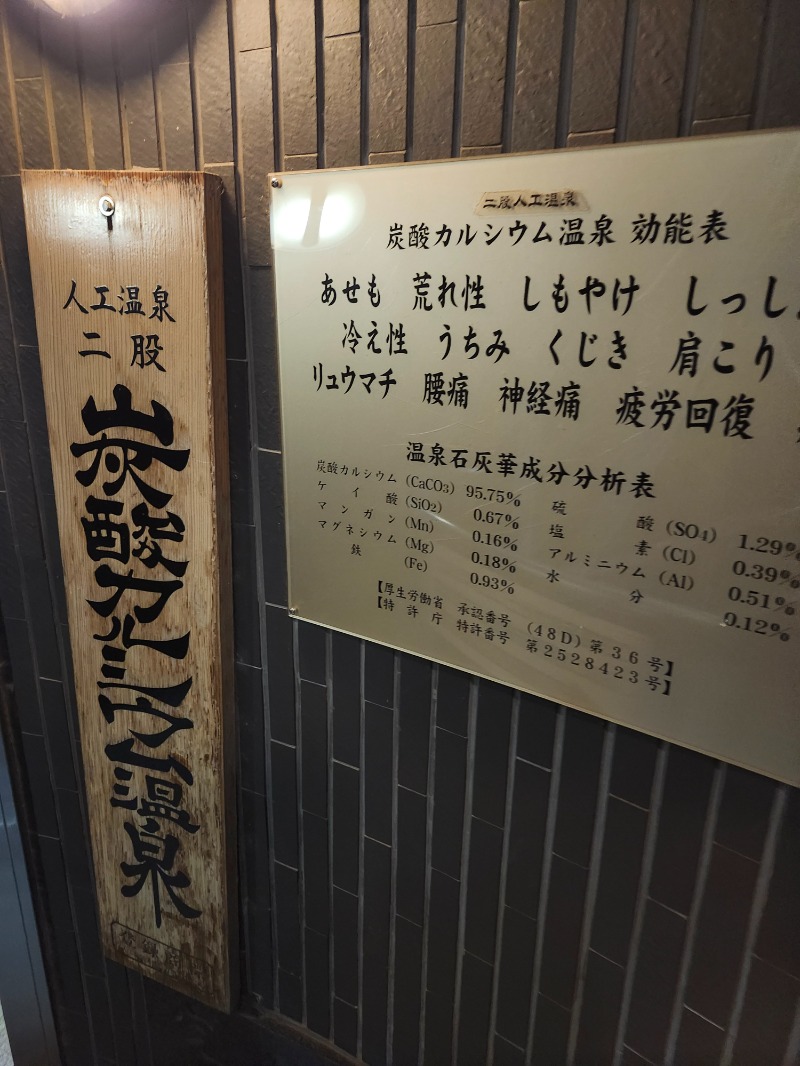 人工温泉
二股
炭酸カルシウム温泉
二股人工温泉
炭酸カルシウム温泉 効能表
あせも 荒れ性 しもやけ しっし
冷え性 うちみ くじき 肩こり
リュウマチ 腰痛 神経痛 疲労回復
温泉石灰華成分分析表
炭酸カルシウム (CaCO3) 95.75% 硫酸 (SO4) 1.29%
ケイ酸 (SiO2) 0.67% 塩素 (Cl) 0.39%
マンガン (Mn) 0.16% アルミニウム (Al) 0.51%
マグネシウム (Mg) 0.18% 水分 0.12%
鉄 (Fe) 0.93%
【厚生労働省 承認番号 (48D)第36号】
【特許庁 特許番号 第2528423号】